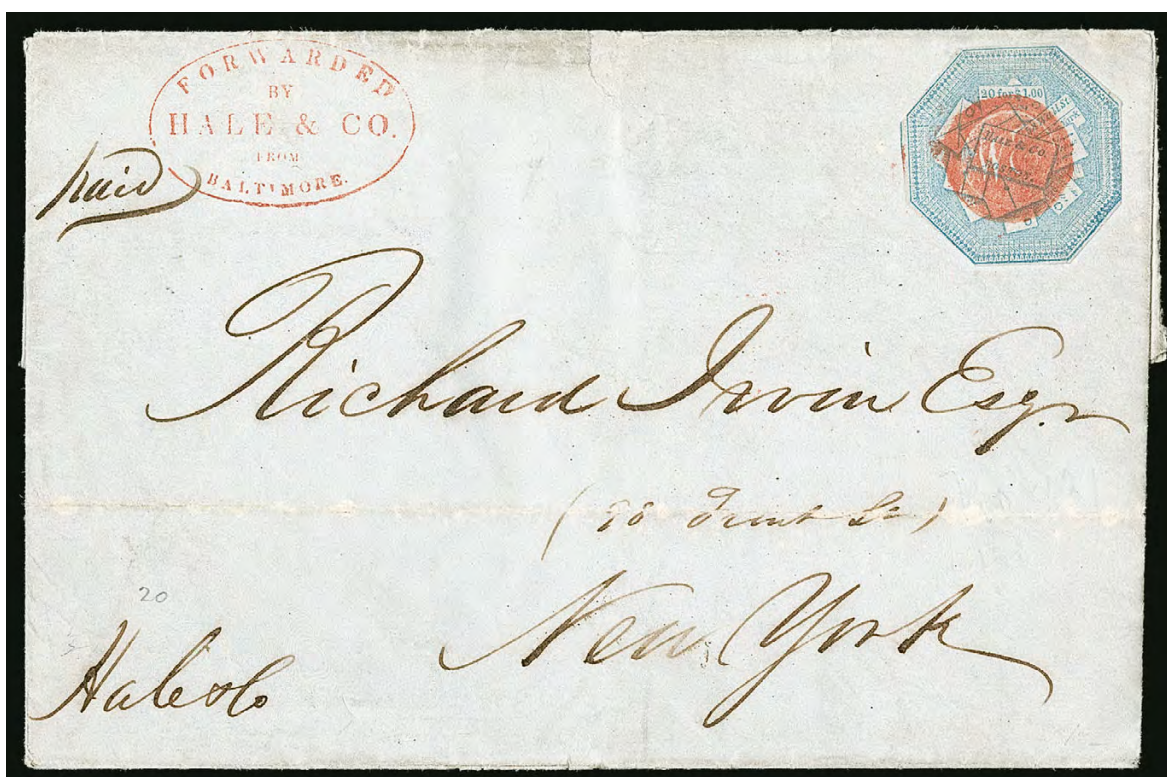 FORWARDED
BY
HALE & CO.
FROM
BALTIMORE.
20 for $1.00
paid
Richard Irvin Esqr
( 98 Front St )
New York
20
Hale & Co